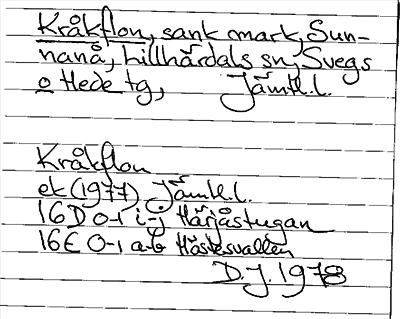 Kråkflon, sank mark, Sun-
nanå, Lillhärdals sn, Svegs
o Hede tg, Jämtl.l.
Kråkflon
ek (1977) Jämtl.l.
16D 0-1 i-j Härjåstugan
16E 0-1 a-b Hästesvallen
D.J. 1978